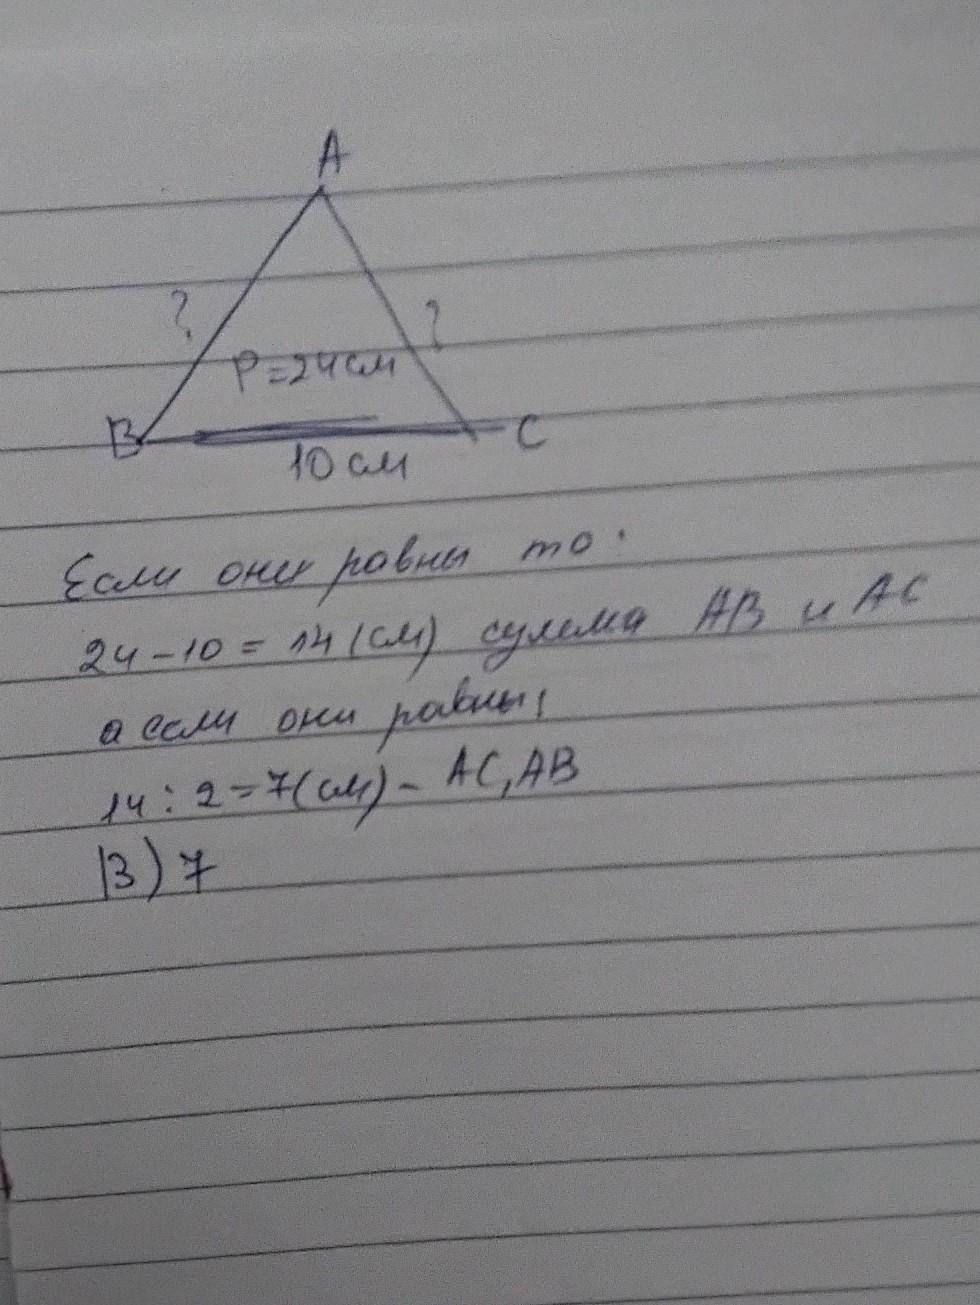 A
? ?
P=24см
B C
10 см
Если они равны то:
24-10=14(см) сумма AB и AC
а если они равны,
14:2=7(см)- AC,AB
B) 7